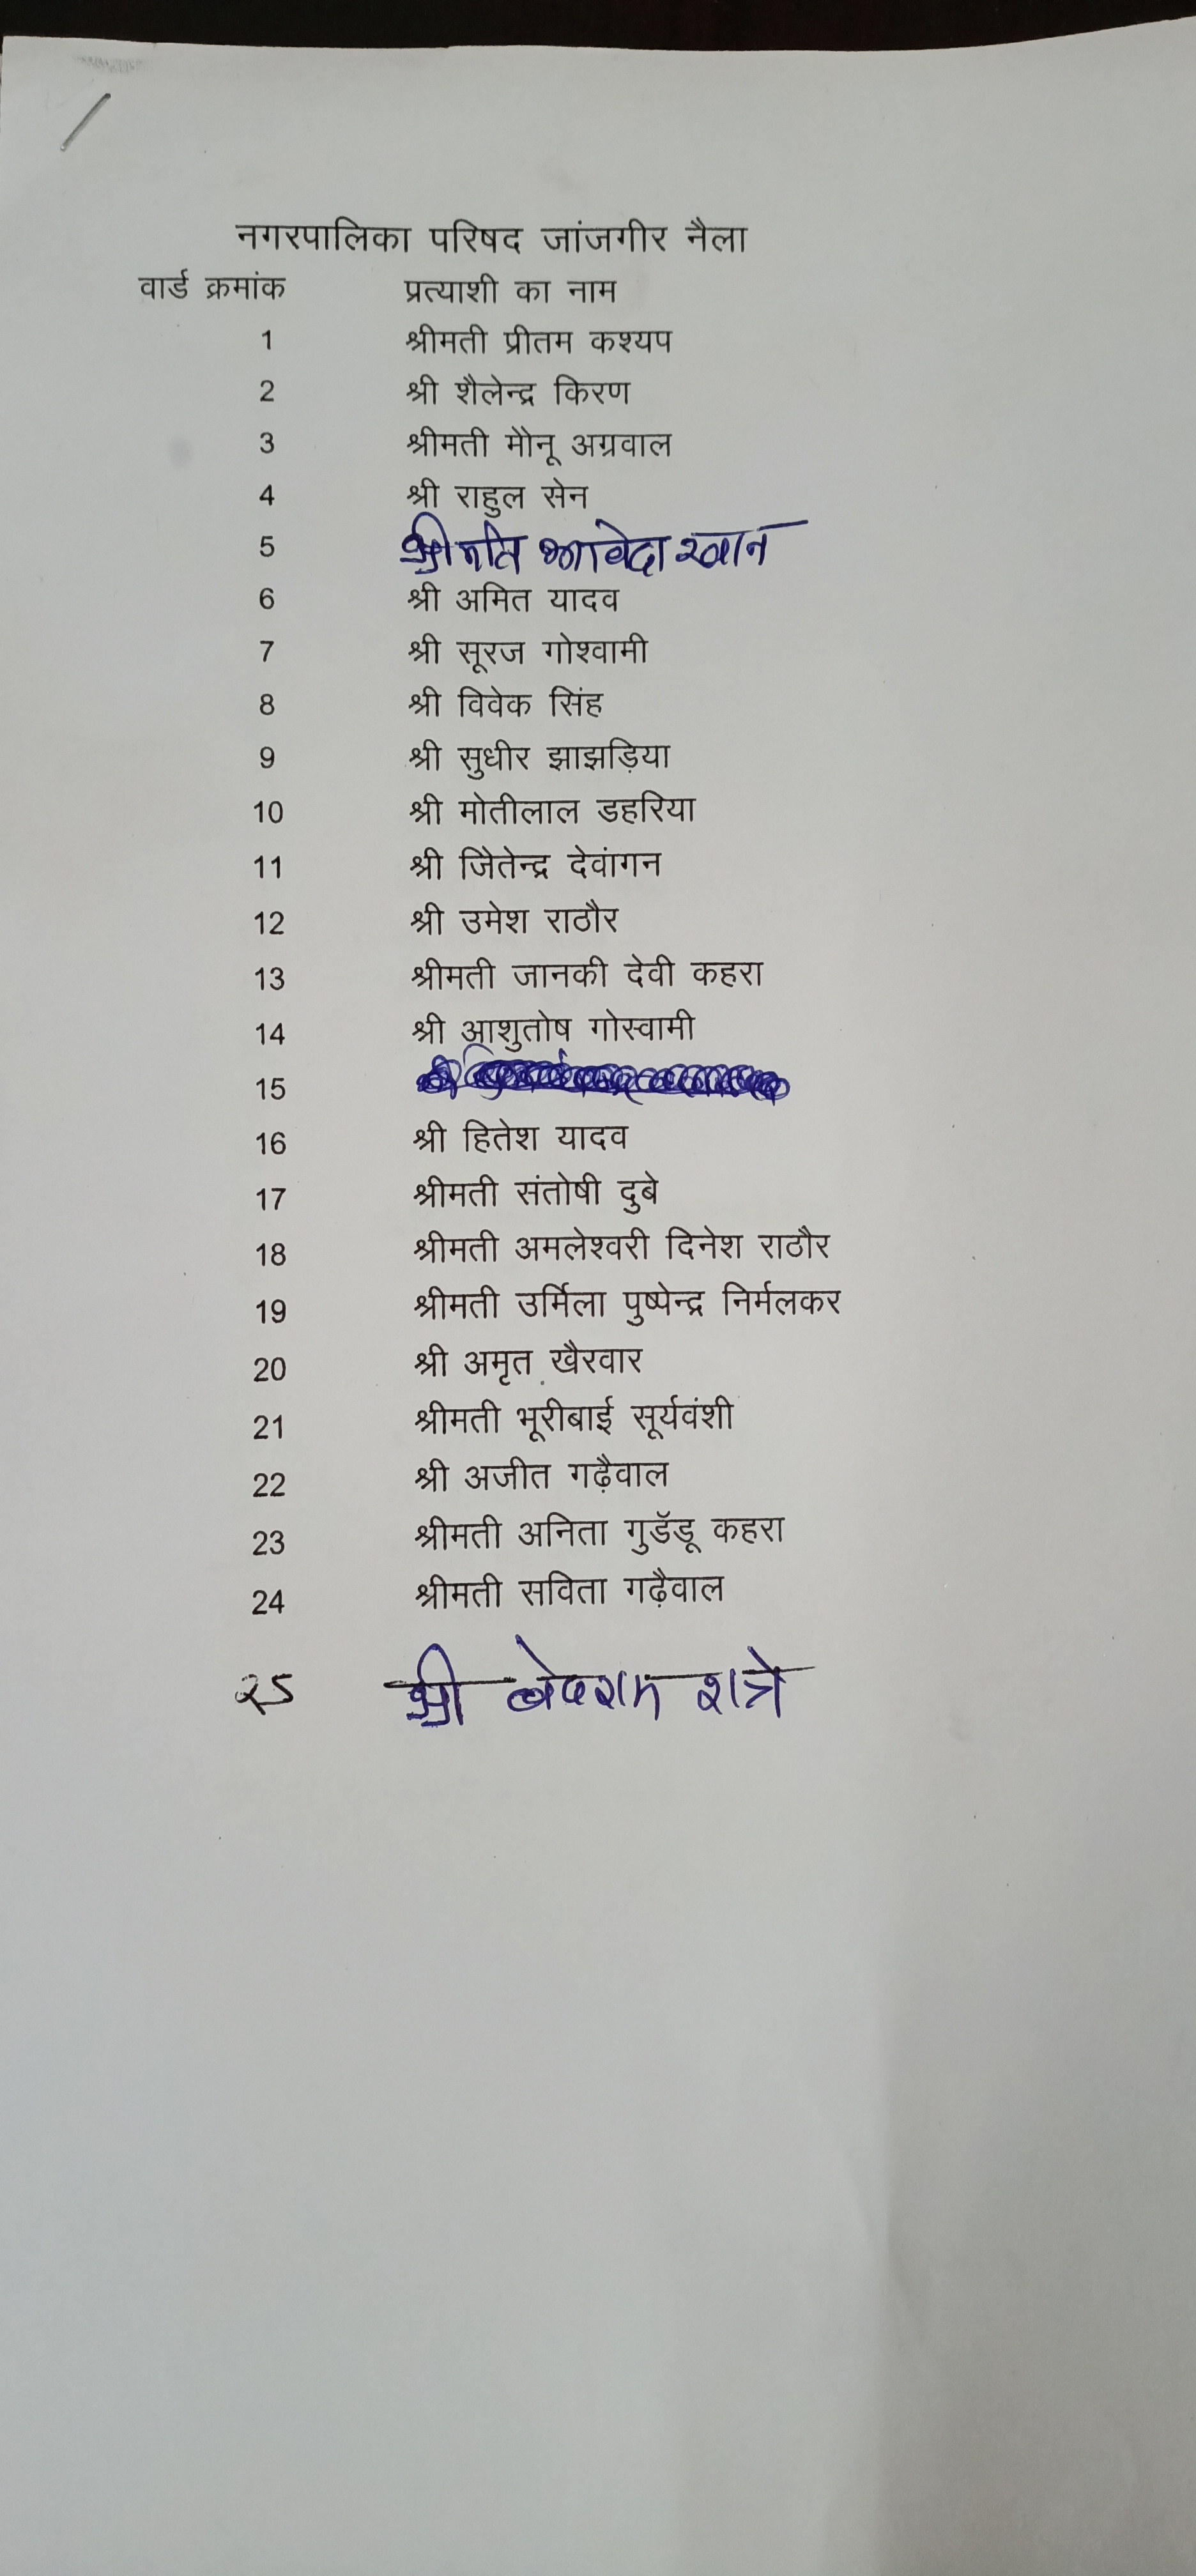 नगरपालिका परिषद जांजगीर नैला
वार्ड क्रमांक प्रत्याशी का नाम
1 श्रीमती प्रीतम कश्यप
2 श्री शैलेन्द्र किरण
3 श्रीमती मोनू अग्रवाल
4 श्री राहुल सेन
5 श्रीमति खान
6 श्री अमित यादव
7 श्री सूरज गोश्वामी
8 श्री विवेक सिंह
9 श्री सुधीर झाझड़िया
10 श्री मोतीलाल डहरिया
11 श्री जितेन्द्र देवांगन
12 श्री उमेश राठौर
13 श्रीमती जानकी देवी कहरा
14 श्री आशुतोष गोस्वामी
15
16 श्री हितेश यादव
17 श्रीमती संतोषी दुबे
18 श्रीमती अमलेश्वरी दिनेश राठौर
19 श्रीमती उर्मिला पुष्पेन्द्र निर्मलकर
20 श्री अमृत खैरवार
21 श्रीमती भूरीबाई सूर्यवंशी
22 श्री अजीत गढ़ैवाल
23 श्रीमती अनिता गुडॅडू कहरा
24 श्रीमती सविता गढ़ैवाल
२5 श्री रात्रे